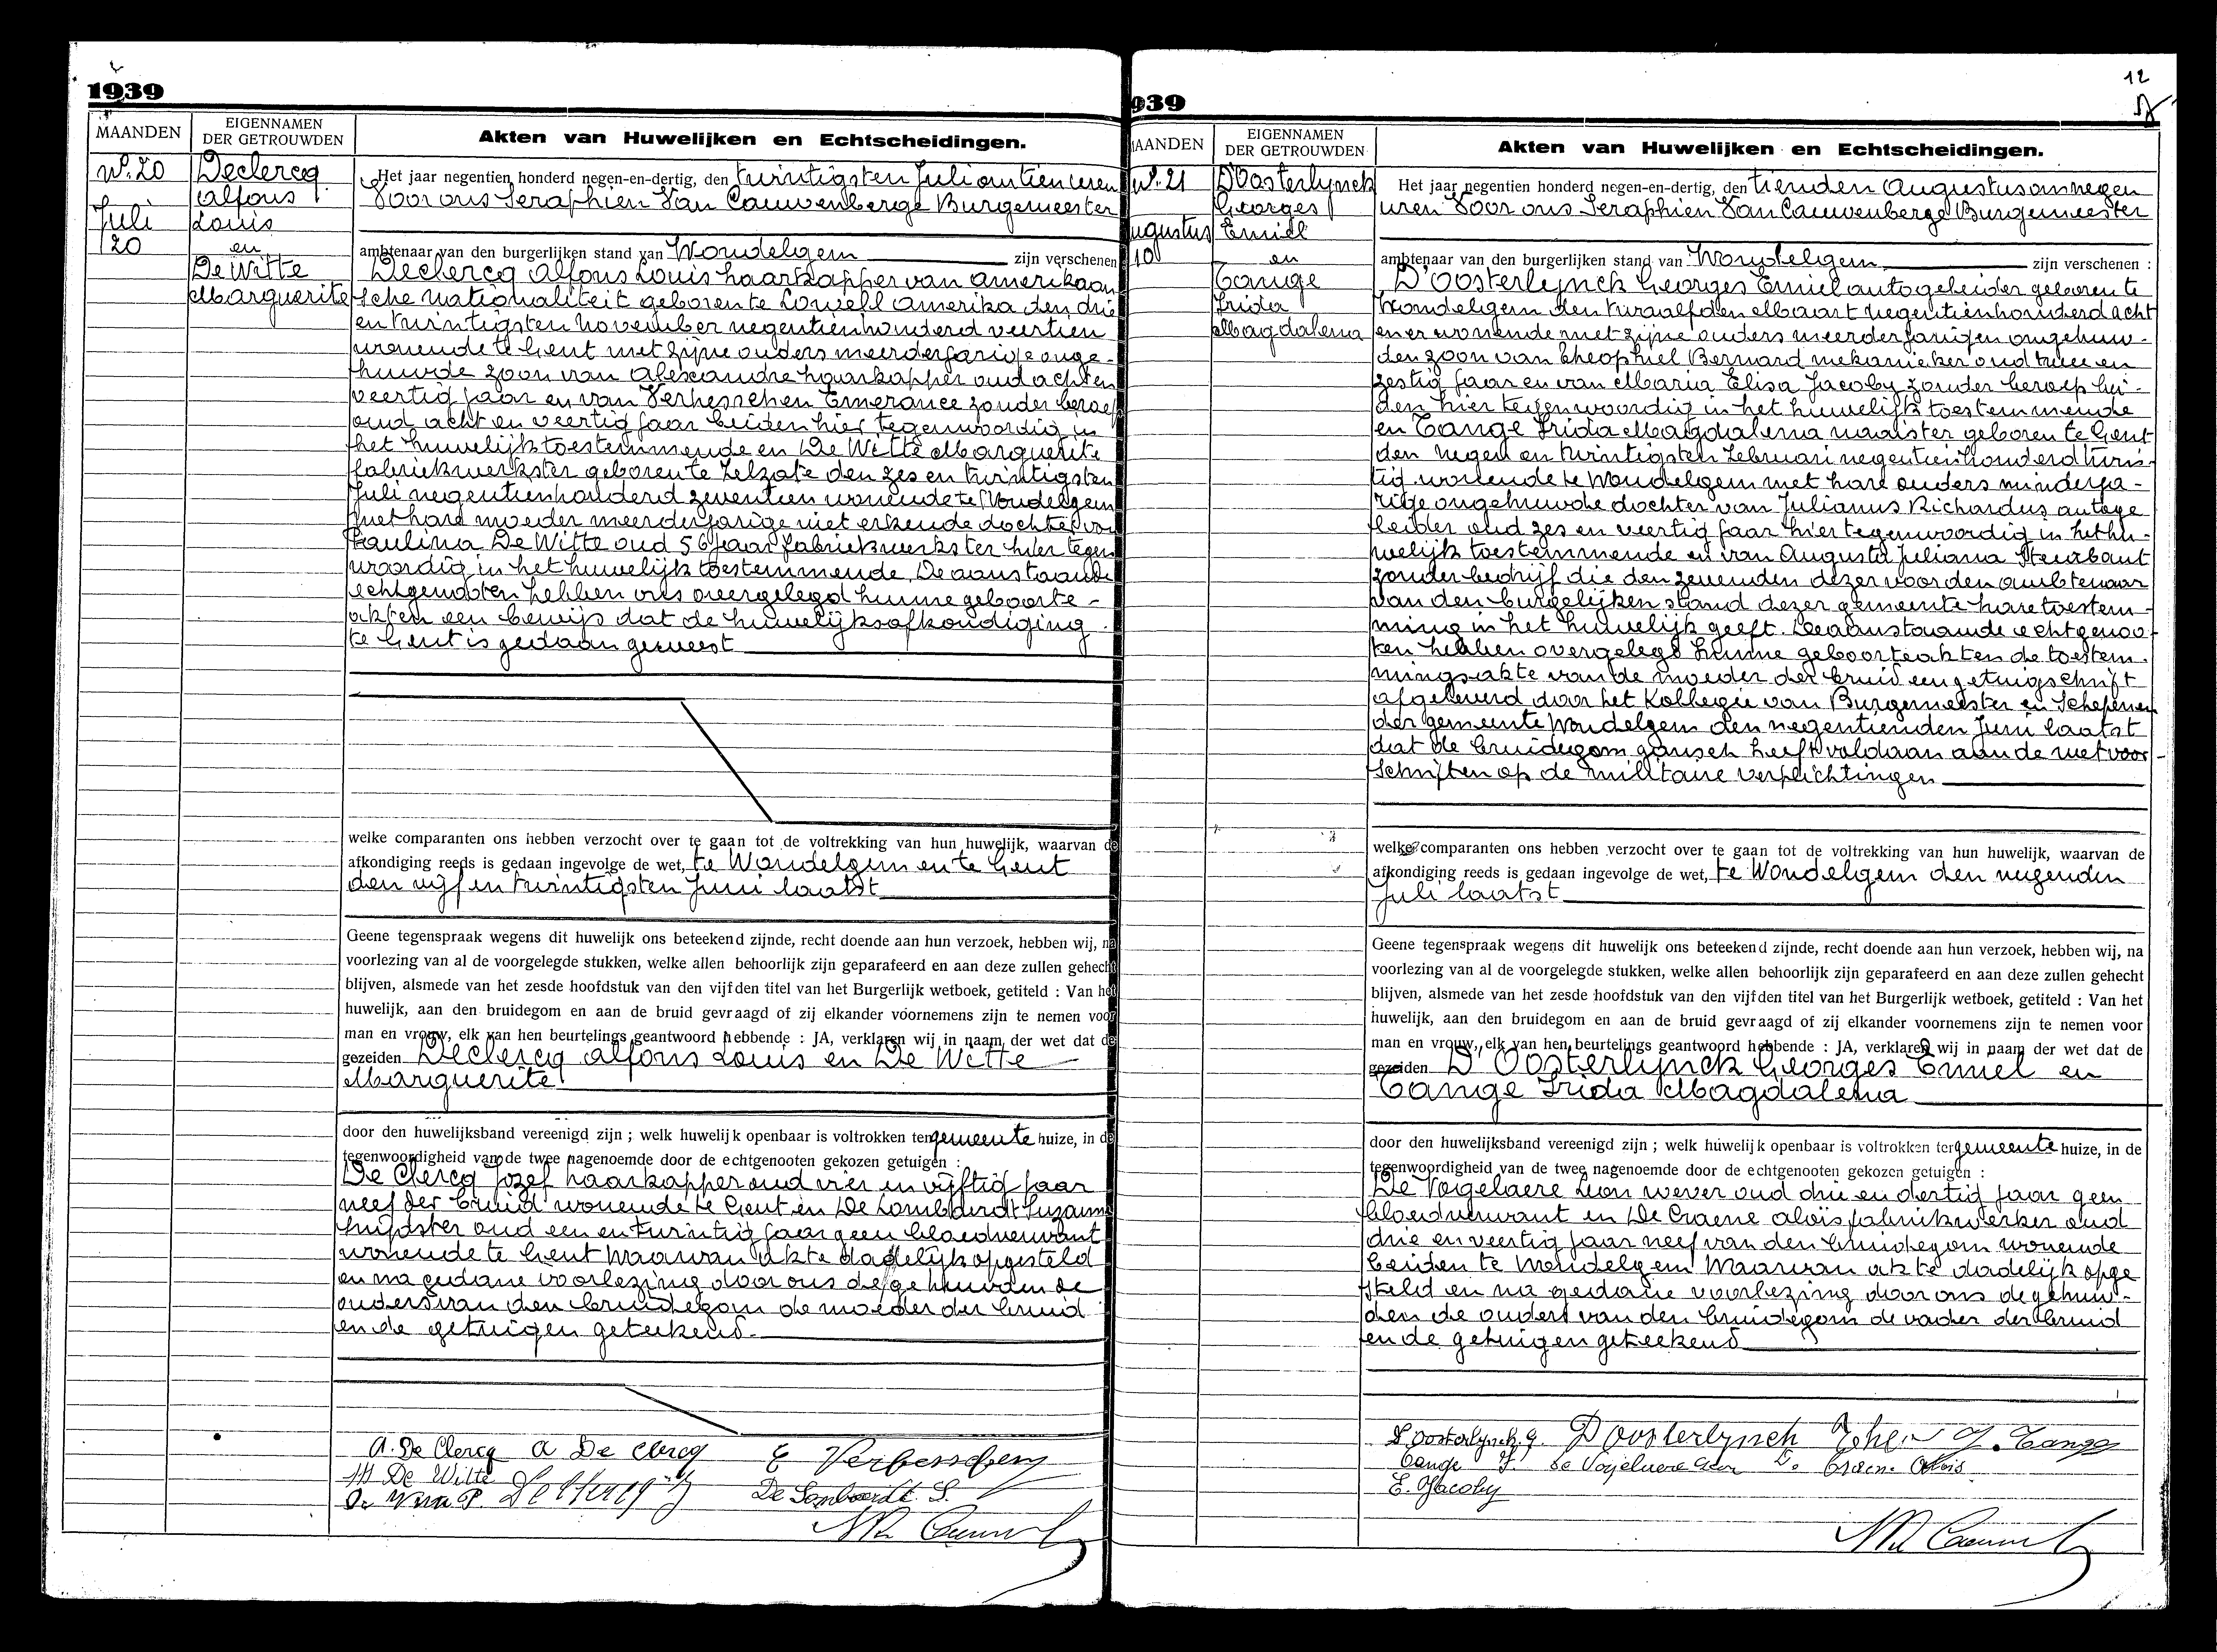 1939
MAANDEN
EIGENNAMEN
DER GETROUWDEN
Akten van Huwelijken en Echtscheidingen.
N°. 20
Juli
20
Declercq
Alfons
Louis
en
De Witte
Marguerite
Het jaar negentien honderd negen-en-dertig, den twintigsten Juli om tien uren
Voor ons Seraphien Van Cauwenberge Burgemeester
ambtenaar van den burgerlijken stand van Wondelgem zijn verschenen
Declercq Alfons Louis haarkapper van Amerikaan
sche nationaliteit geboren te Lowell Amerika den drie
en twintigsten november negentienhonderd veertien
wonende te Gent met zijne ouders meerderjarige onge-
huwde zoon van Alexandre haarkapper oud acht en
veertig jaar en van Verhesschen Emerance zonder beroep
oud acht en veertig jaar beiden hier tegenwoordig in
het huwelijk toestemmende en De Witte Marguerite
fabriekwerkster geboren te Zelzate den zes en twintigsten
Juli negentienhonderd zeventien wonende te Wondelgem
met hare moeder meerderjarige niet erkende dochter van
Paulina De Witte oud 56 jaar fabriekwerkster hier tegen
woordig in het huwelijk toestemmende. De aanstaande
echtgenooten hebben ons overgelegd hunne geboorte-
akten een bewijs dat de huwelijksafkondiging
te Gent is gedaan geweest
welke comparanten ons hebben verzocht over te gaan tot de voltrekking van hun huwelijk, waarvan de
afkondiging reeds is gedaan ingevolge de wet, te Wondelgem en te Gent
den vijf en twintigsten Juni laatst
Geene tegenspraak wegens dit huwelijk ons beteekend zijnde, recht doende aan hun verzoek, hebben wij, na
voorlezing van al de voorgelegde stukken, welke allen behoorlijk zijn geparafeerd en aan deze zullen gehecht
blijven, alsmede van het zesde hoofdstuk van den vijfden titel van het Burgerlijk wetboek, getiteld : Van het
huwelijk, aan den bruidegom en aan de bruid gevraagd of zij elkander voornemens zijn te nemen voor
man en vrouw, elk van hen beurtelings geantwoord hebbende : JA, verklaren wij in naam der wet dat de
gezeiden Declercq Alfons Louis en De Witte
Marguerite
door den huwelijksband vereenigd zijn ; welk huwelijk openbaar is voltrokken ten gemeente huize, in de
tegenwoordigheid van de twee nagenoemde door de echtgenooten gekozen getuigen :
De Clercq Jozef haarkapper oud vier en vijftig jaar
neef der bruid wonende te Gent en De Lombaerdt Suzanne
huisster oud een en twintig jaar geen bloedverwant
wonende te Gent Waarvan akte dadelijk opgesteld
en na gedane voorlezing door ons de gehuwden de
ouders van den bruidegom de moeder der bruid
en de getuigen geteekend.
A. De Clercq A De Clercq E Verhesschen
M De Witte
De Witte P. De Clercq J De Lombaerdt S.
939
12
MAANDEN
EIGENNAMEN
DER GETROUWDEN
Akten van Huwelijken en Echtscheidingen.
N°. 21
Augustus
10
D'Oosterlynck
Georges
Emiel
en
Cange
Frida
Magdalena
Het jaar negentien honderd negen-en-dertig, den tienden Augustus om negen
uren Voor ons Seraphien Van Cauwenberge Burgemeester
ambtenaar van den burgerlijken stand van Wondelgem zijn verschenen :
D'Oosterlynck Georges Emiel autogeleider geboren te
Wondelgem den twaalfden Maart negentienhonderd acht
en er wonende met zijne ouders meerderjarigen ongehuw-
den zoon van Theophiel Bernard mekanieker oud twee en
zestig jaar en van Maria Elisa Jacoby zonder beroep bei-
den hier tegenwoordig in het huwelijk toestemmende
en Cange Frida Magdalena naaister geboren te Gent
den negen en twintigsten Februari negentienhonderd twin-
tig wonende te Wondelgem met hare ouders minderja-
rige ongehuwde dochter van Julianus Richardus autoge
leider oud zes en veertig jaar hier tegenwoordig in het hu-
welijk toestemmende en van Augusta Juliana Steurbaut
zonder bedrijf die den zevenden dezer voor den ambtenaar
van den burgelijken stand dezer gemeente hare toestem-
ming in het huwelijk geeft. De aanstaande echtgenoo-
ten hebben overgelegd hunne geboorteakten de toestem-
mingsakte van de moeder der bruid een getuigschrift
afgeleverd door het Kollegie van Burgemeester en Schepenen
der gemeente Wondelgem den negentienden Juni laatst
dat de bruidegom gansch heeft voldaan aan de wetvoor-
schriften op de militaire verplichtingen
welke comparanten ons hebben verzocht over te gaan tot de voltrekking van hun huwelijk, waarvan de
afkondiging reeds is gedaan ingevolge de wet, te Wondelgem den negenden
Juli laatst
Geene tegenspraak wegens dit huwelijk ons beteekend zijnde, recht doende aan hun verzoek, hebben wij, na
voorlezing van al de voorgelegde stukken, welke allen behoorlijk zijn geparafeerd en aan deze zullen gehecht
blijven, alsmede van het zesde hoofdstuk van den vijfden titel van het Burgerlijk wetboek, getiteld : Van het
huwelijk, aan den bruidegom en aan de bruid gevraagd of zij elkander voornemens zijn te nemen voor
man en vrouw, elk van hen beurtelings geantwoord hebbende : JA, verklaren wij in naam der wet dat de
gezeiden D'Oosterlynck Georges Emiel en
Cange Frida Magdalena
door den huwelijksband vereenigd zijn ; welk huwelijk openbaar is voltrokken ter gemeente huize, in de
tegenwoordigheid van de twee nagenoemde door de echtgenooten gekozen getuigen :
De Vogelaere Leon wever oud drie en dertig jaar geen
bloedverwant en De Craene Aloïs fabriekwerker oud
drie en veertig jaar neef van den bruidegom wonende
beiden te Wondelgem Waarvan akte dadelijk opge
steld en na gedane voorlezing door ons de gehuw-
den de ouders van den bruidegom de vader der bruid
en de getuigen geteekend
D'oosterlynck g. D'oosterlynck Theo J. Cange
Cange F. De Vogelaere Leon De Craene Aloïs
E. Jacoby